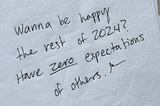 Wanna be happy
the rest of 2024?
Have zero expectations
of others.